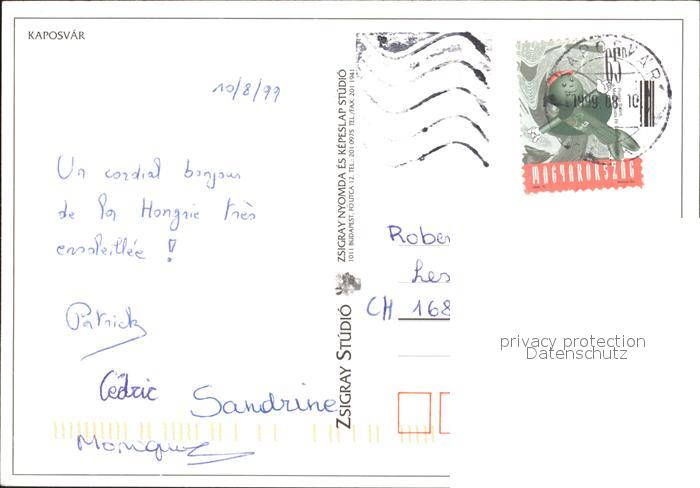 KAPOSVÁR
10/8/99
Un cordial bonjour
de la Hongrie très
ensoleillée !
Patrick
Cédric
Sandrine
Monique
ZSIGRAY STÚDIÓ
ZSIGRAY NYOMDA ÉS KÉPESLAP STÚDIÓ
1011 BUDAPEST, FŐ UTCA 12. TEL: 201 0975 TEL./FAX: 201 1941
KAPOSVÁR
1999 08 10
65
MAGYARORSZÁG
Rober
Les
CH 168
privacy protection
Datenschutz